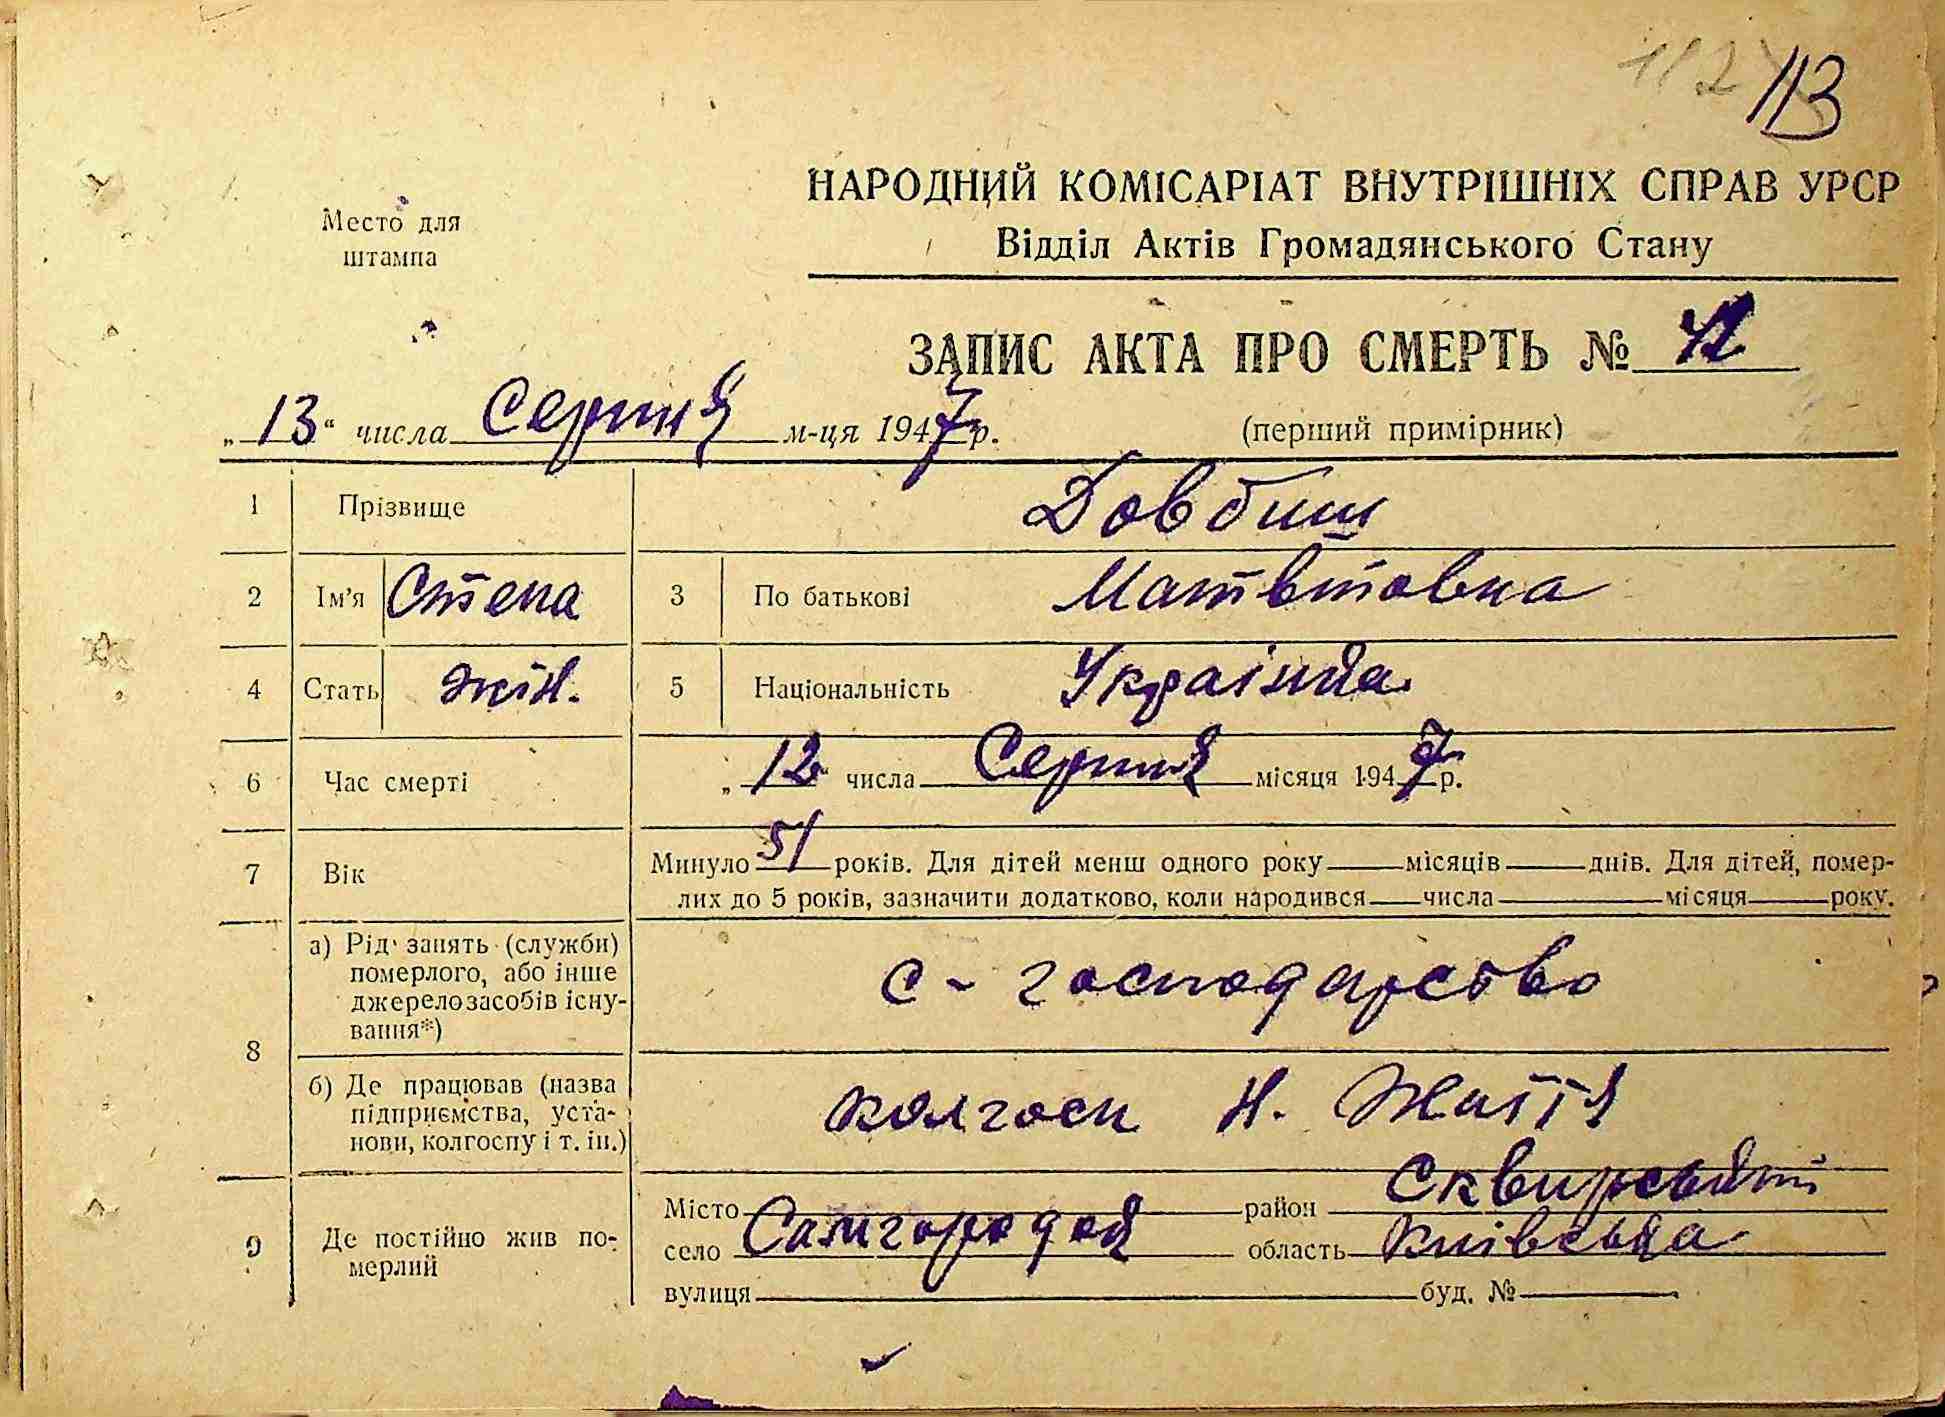 112 113
НАРОДНИЙ КОМІСАРІАТ ВНУТРІШНІХ СПРАВ УРСР
Место для
штампа
Відділ Актів Громадянського Стану
ЗАПИС АКТА ПРО СМЕРТЬ №
„13“ числа Серпня м-ця 1947 р. (перший примірник)
1 Прізвище Довбиш
2 Ім'я Степа 3 По батькові Матвіювна
4 Стать жін. 5 Національність Українка
6 Час смерті „12“ числа Серпня місяця 1947 р.
7 Вік Минуло 51 років. Для дітей менш одного року місяців днів. Для дітей, помер-
лих до 5 років, зазначити додатково, коли народився числа місяця року.
8 а) Рід занять (служби)
померлого, або інше
джерело засобів існу-
вання*)
с - господарство
б) Де працював (назва
підприємства, уста-
нови, колгоспу і т. ін.)
колгосп Н. Життя
9 Де постійно жив по-
мерлий
Місто район Сквирський
село Самгородок область Київська
вулиця буд. №